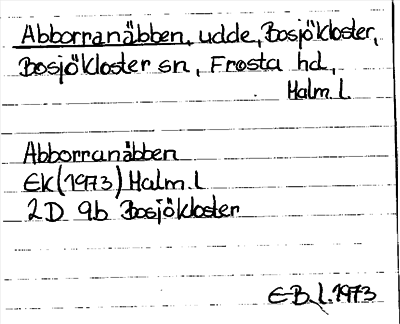 Abborranäbben, udde, Bosjökloster,
Bosjökloster sn, Frosta hd,
Malm. L
Abborranäbben
EK (1973) Malm. L
2D 9b Bosjökloster
E-B. L. 1973